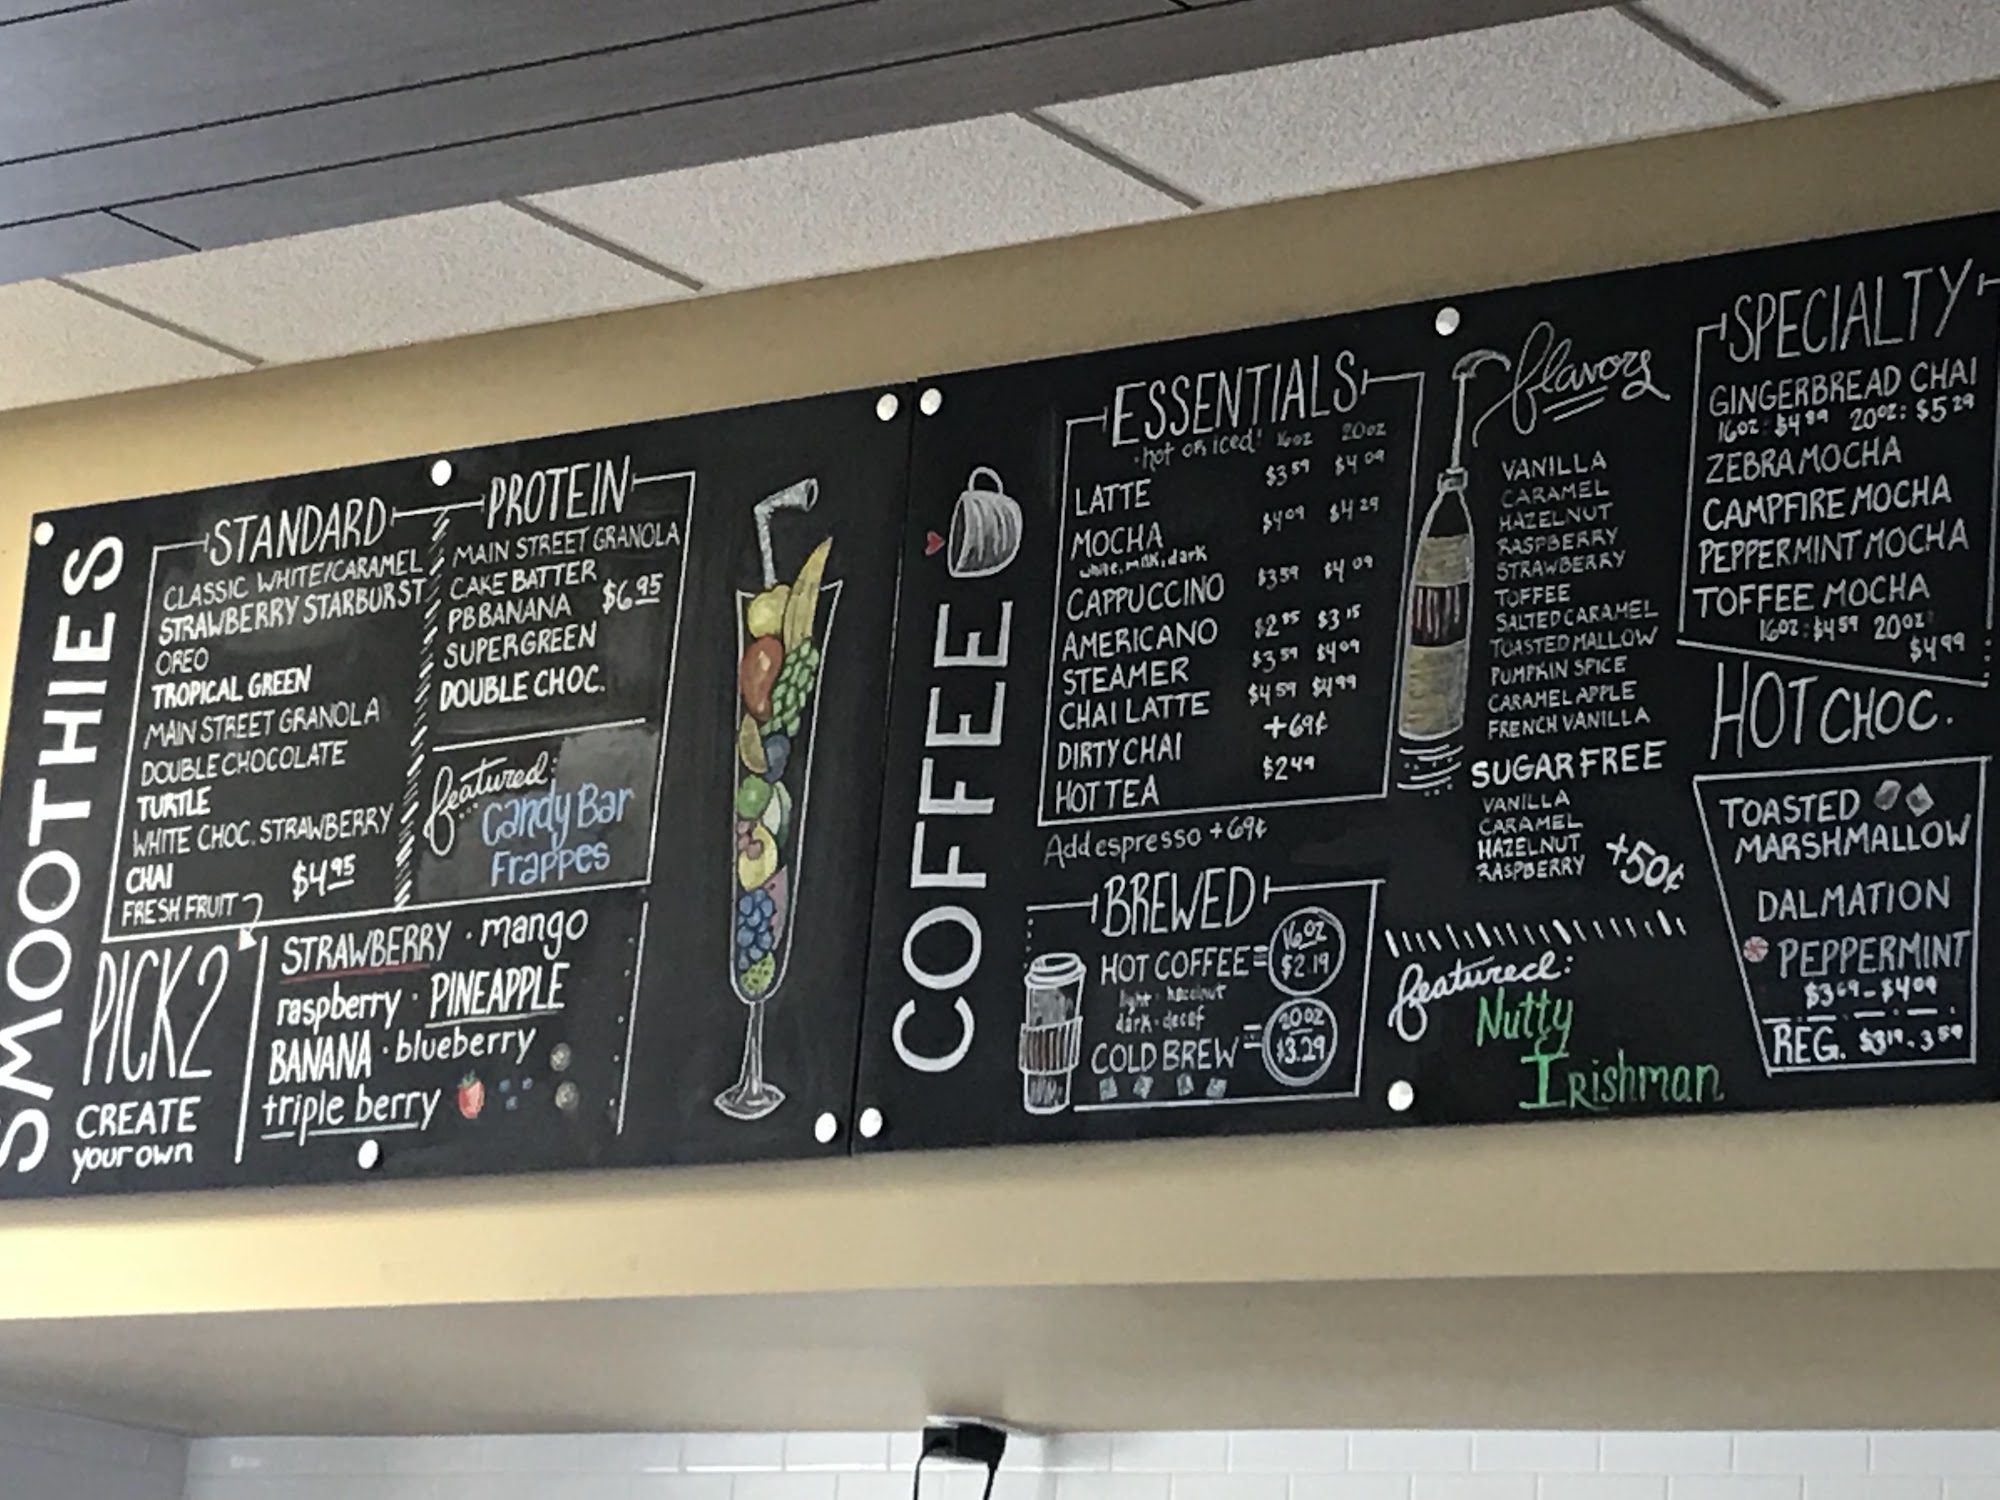 SMOOTHIES
STANDARD
CLASSIC WHITE/CARAMEL
STRAWBERRY STARBURST
OREO
TROPICAL GREEN
MAIN STREET GRANOLA
DOUBLE CHOCOLATE
TURTLE
WHITE CHOC. STRAWBERRY
CHAI
$4.95
FRESH FRUIT
PROTEIN
MAIN STREET GRANOLA
CAKE BATTER
PB BANANA $6.95
SUPERGREEN
DOUBLE CHOC.
featured:
Candy Bar
Frappes
PICK 2
CREATE
your own
STRAWBERRY · mango
raspberry · PINEAPPLE
BANANA · blueberry
triple berry
COFFEE
ESSENTIALS
·hot or iced! 16oz 20oz
LATTE $3.59 $4.09
MOCHA $4.09 $4.29
white, milk, dark
CAPPUCCINO $3.59 $4.09
AMERICANO $3.15
STEAMER $3.59 $4.09
CHAI LATTE $4.59 $4.99
DIRTY CHAI +69¢
HOT TEA $2.49
Add espresso +69¢
BREWED
HOT COFFEE = 16oz $2.19
light · hazelnut
dark · decaf
COLD BREW = 20oz $3.29
flavors
VANILLA
CARAMEL
HAZELNUT
RASPBERRY
STRAWBERRY
TOFFEE
SALTED CARAMEL
TOASTED MALLOW
PUMPKIN SPICE
CARAMEL APPLE
FRENCH VANILLA
SUGAR FREE
VANILLA
CARAMEL
HAZELNUT
RASPBERRY
+50¢
featured:
Nutty
Irishman
SPECIALTY
GINGERBREAD CHAI
16oz: $4.89 20oz: $5.29
ZEBRA MOCHA
CAMPFIRE MOCHA
PEPPERMINT MOCHA
TOFFEE MOCHA
16oz: $4.59 20oz:
$4.99
HOT CHOC.
TOASTED
MARSHMALLOW
DALMATION
PEPPERMINT
$3.69 - $4.09
REG. $3.19 - 3.59